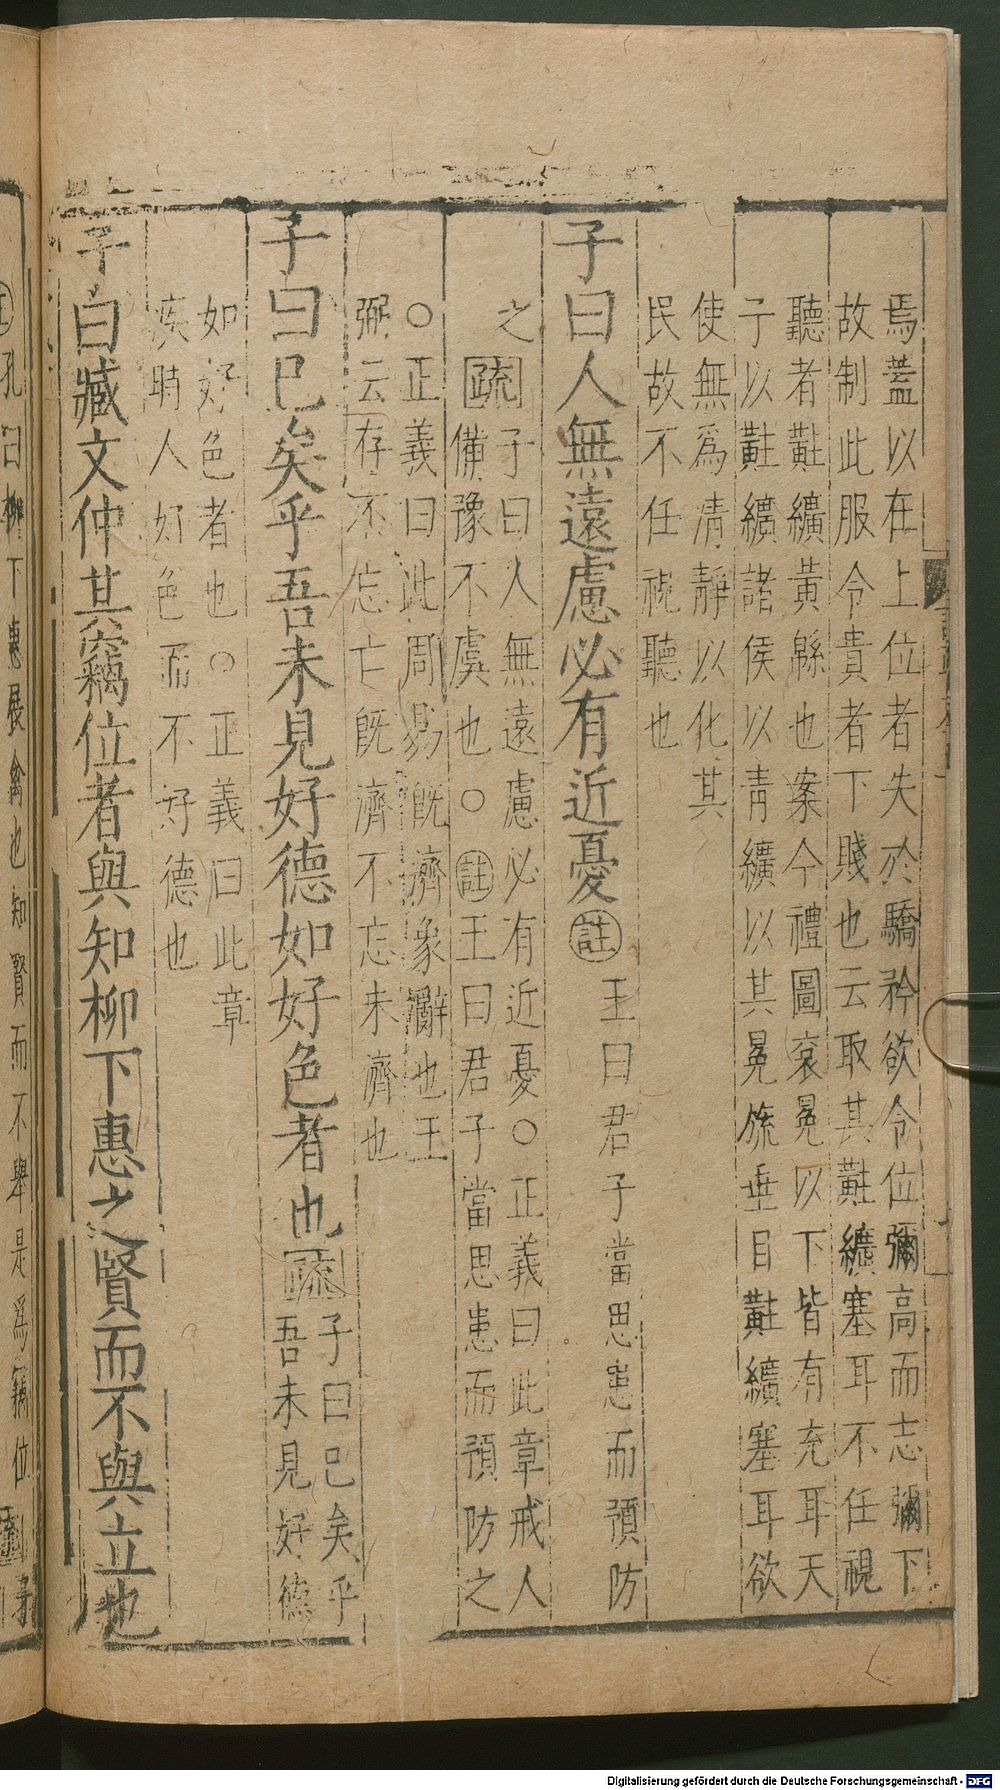 焉蓋以在上位者失於驕矜欲令位彌高而志彌下
故制此服令貴者下賤也云取其黈纊塞耳不任視
聽者黈纊黃緜也案今禮圖衮冕以下皆有充耳天
子以黈纊諸侯以青纊以其冕旒垂目黈纊塞耳欲
使無為清靜以化其
民故不任視聽也
子曰人無遠慮必有近憂註王曰君子當思患而預防
之疏子曰人無遠慮必有近憂○正義曰此章戒人
備豫不虞也○註王曰君子當思患而預防之
○正義曰此周易既濟象辭也王
弼云存不忘亡既濟不忘未濟也
子曰已矣乎吾未見好德如好色者也疏子曰已矣乎
吾未見好德
如好色者也○正義曰此章
疾時人好色而不好德也
子曰臧文仲其竊位者與知柳下惠之賢而不與立也
孔曰柳下惠展禽也知賢而不舉是為竊位
Digitalisierung gefördert durch die Deutsche Forschungsgemeinschaft - DFG